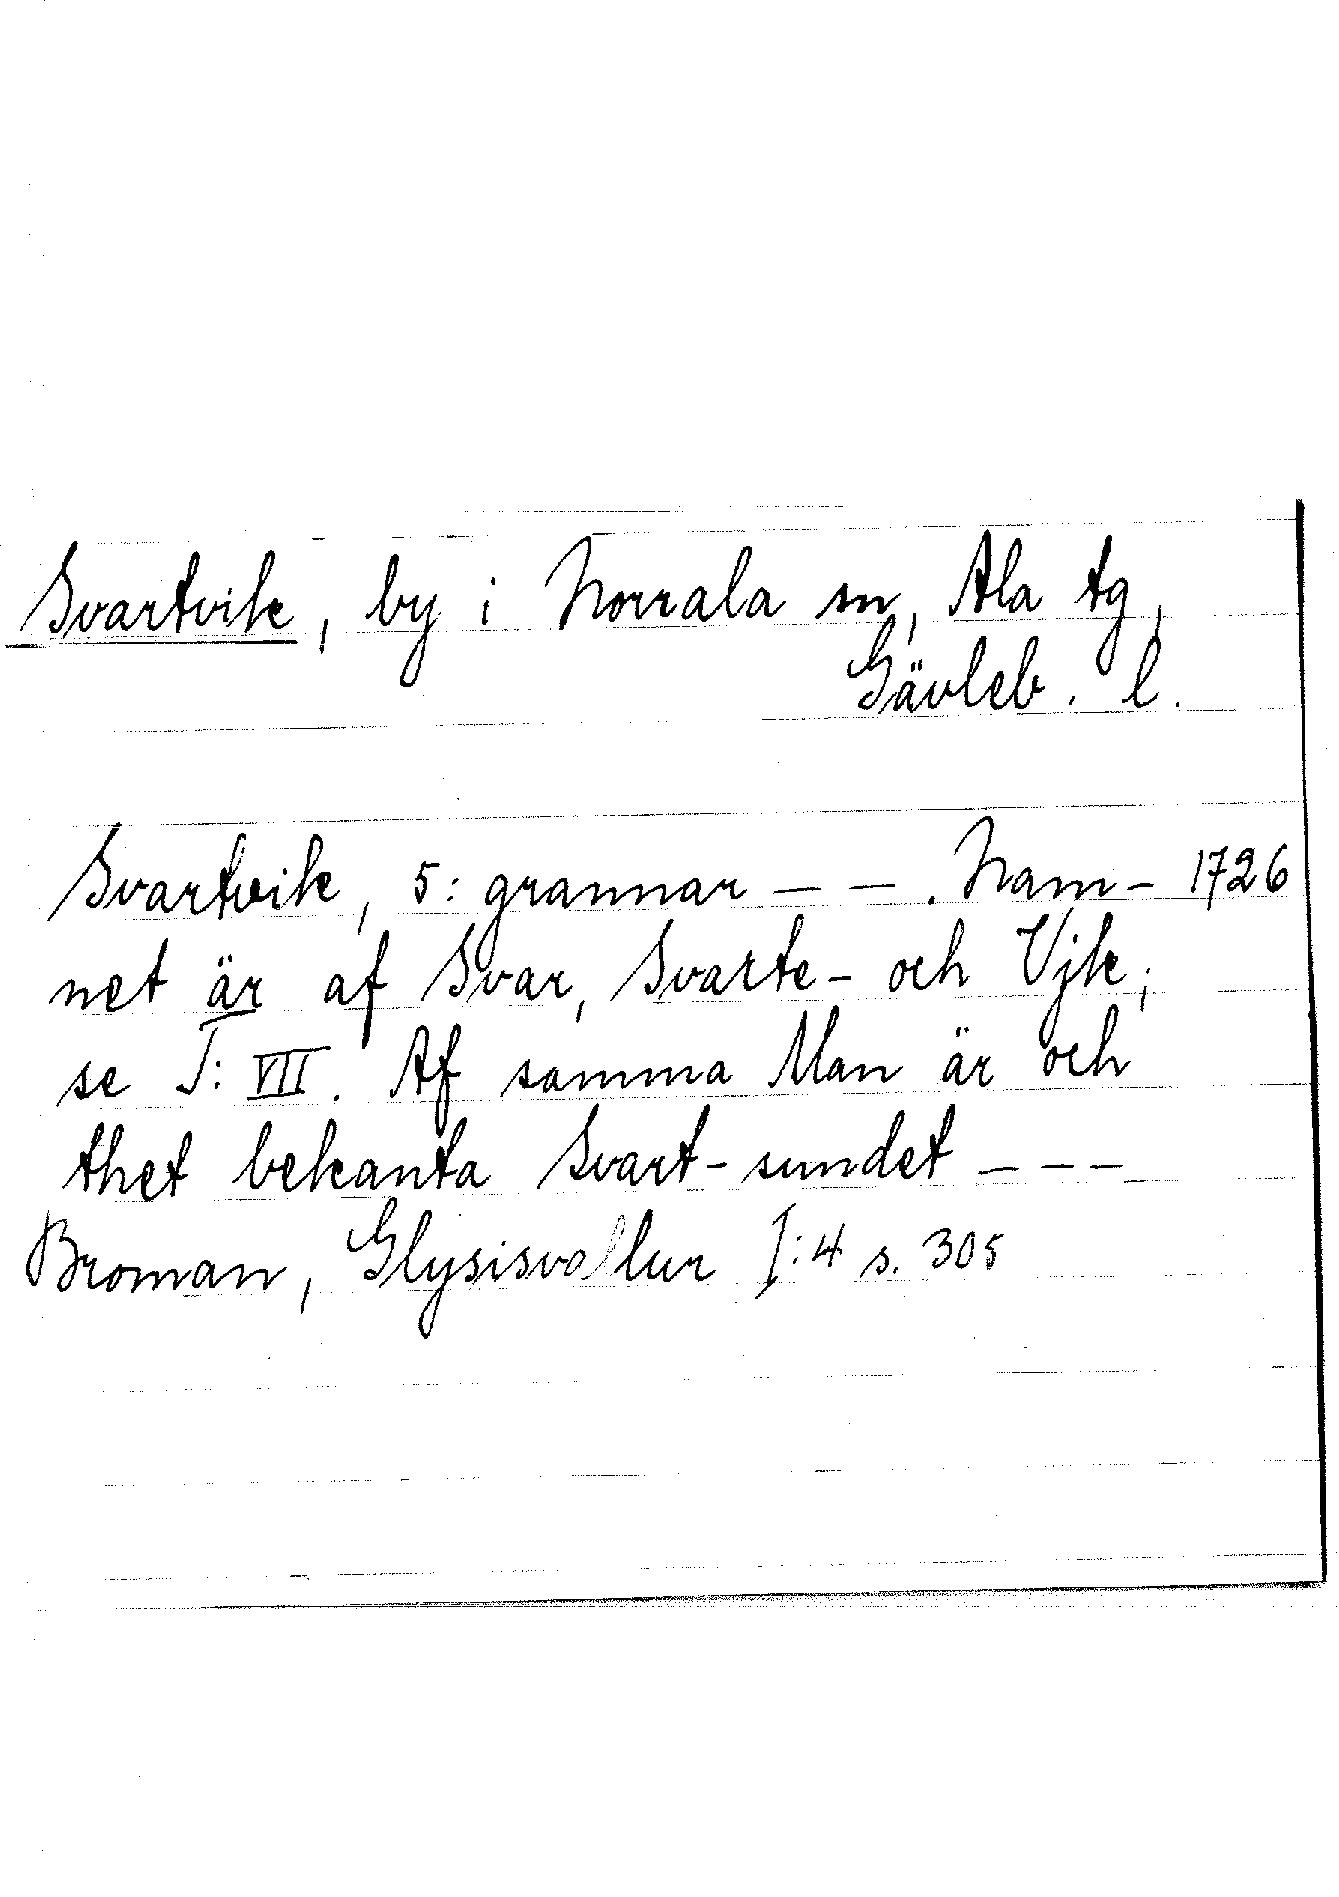 Svartvik, by i Norrala sn, Ala tg,
Gävleb. l.
Svartvik, 5: grannar — — . Nam- 1726
net är af Svar, Svarte- och Vjk;
se T: VII. Af samma Man är och
thet bekanta Svart-sundet — — —
Broman, Glysisvallur I:4 s. 305